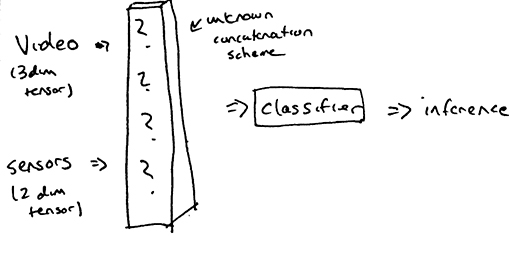 Video =>
(3 dim
tensor)
sensors =>
(2 dim
tensor)
?
?
?
?
unknown
concatenation
scheme
=> classifier => inference